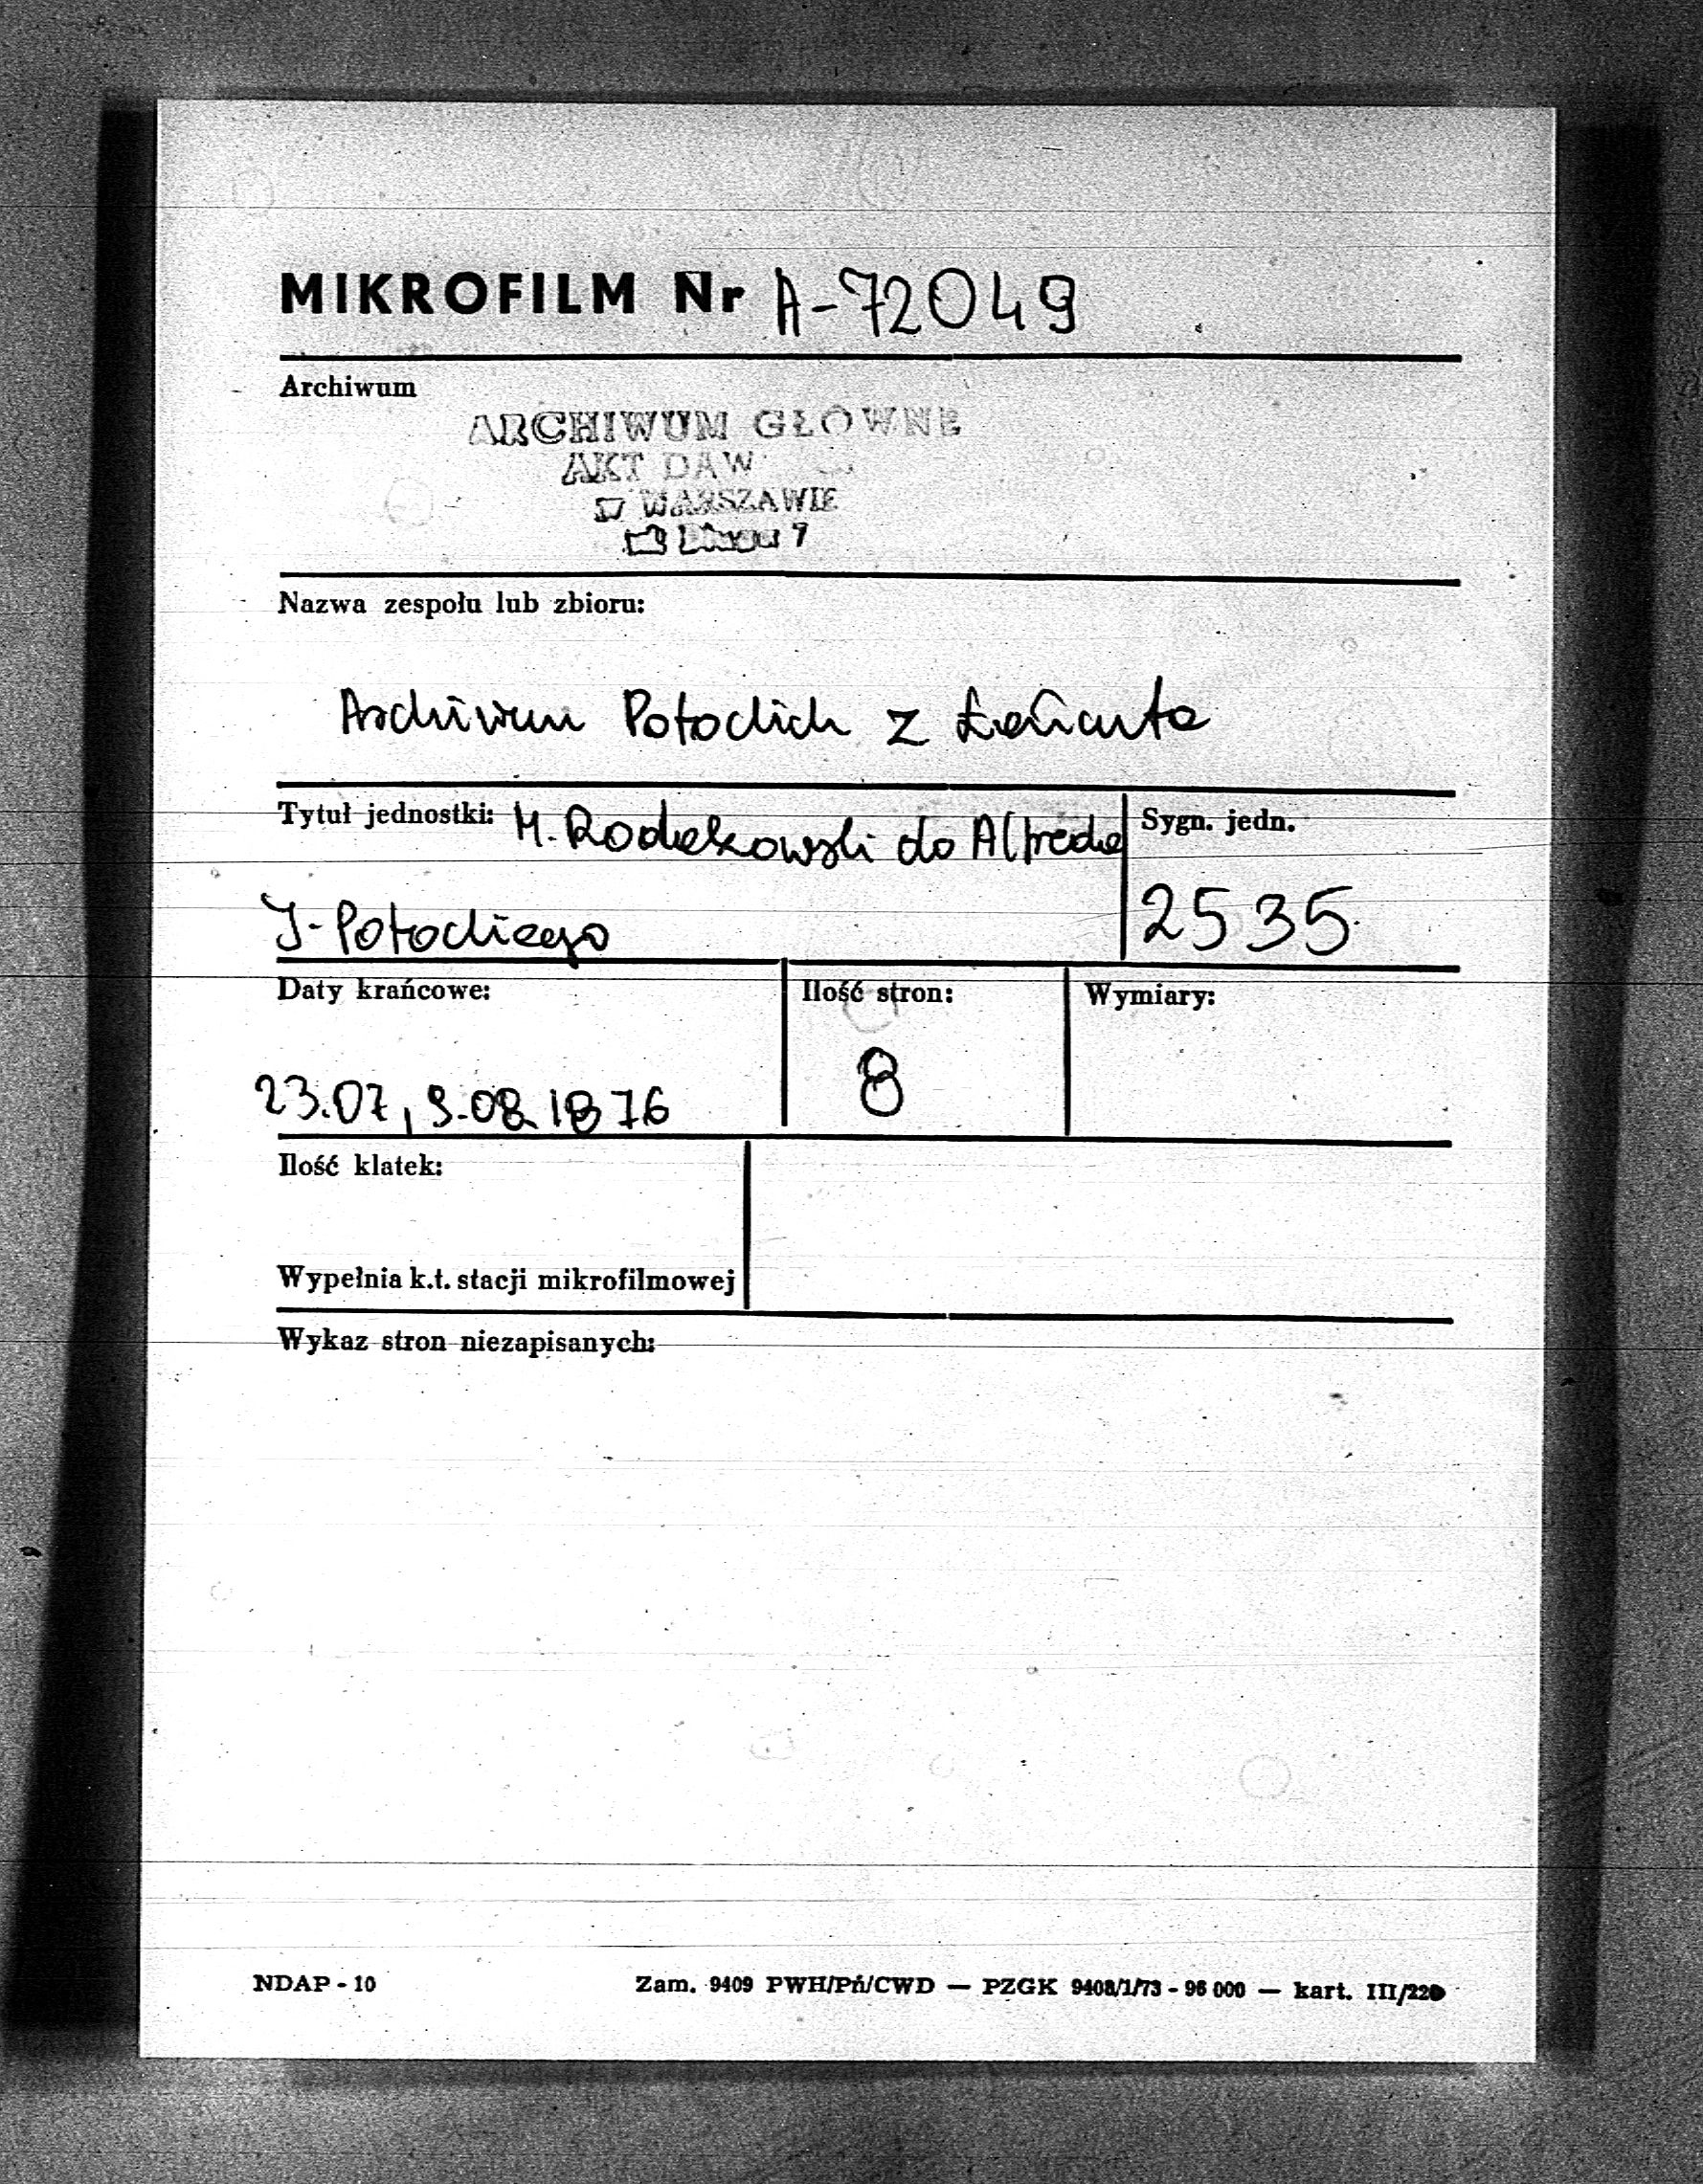 MIKROFILM Nr A-72049
Archiwum
ARCHIWUM GŁÓWNE
AKT DAW
W WARSZAWIE
Długa 7
Nazwa zespołu lub zbioru:
Archiwum Potockich z Łańcuta
Tytuł jednostki: H. Rodakowski do Alfreda
Sygn. jedn.
J. Potockiego
2535
Daty krańcowe:
Ilość stron:
Wymiary:
23.07, 9.08.1876
8
Ilość klatek:
Wypełnia k.t. stacji mikrofilmowej
Wykaz stron niezapisanych:
NDAP - 10
Zam. 9409 PWH/Pń/CWD — PZGK 9408/1/73 - 96 000 — kart. III/220